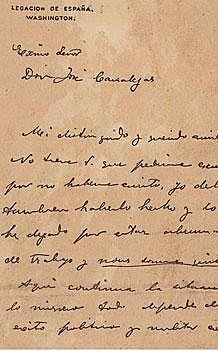 LEGACION DE ESPAÑA.
WASHINGTON.
Excmo Señor
Don José Canalejas
Mi distinguido y querido ami
No tiene V. que pedirme excu
por no haberme escrito, yo deb
tambien haberlo hecho y lo
he dejado por estar abrum
de trabajo y nous sommes quit
Aqui continua la situac
lo mismo. Todo depende de
exito politico y militar en